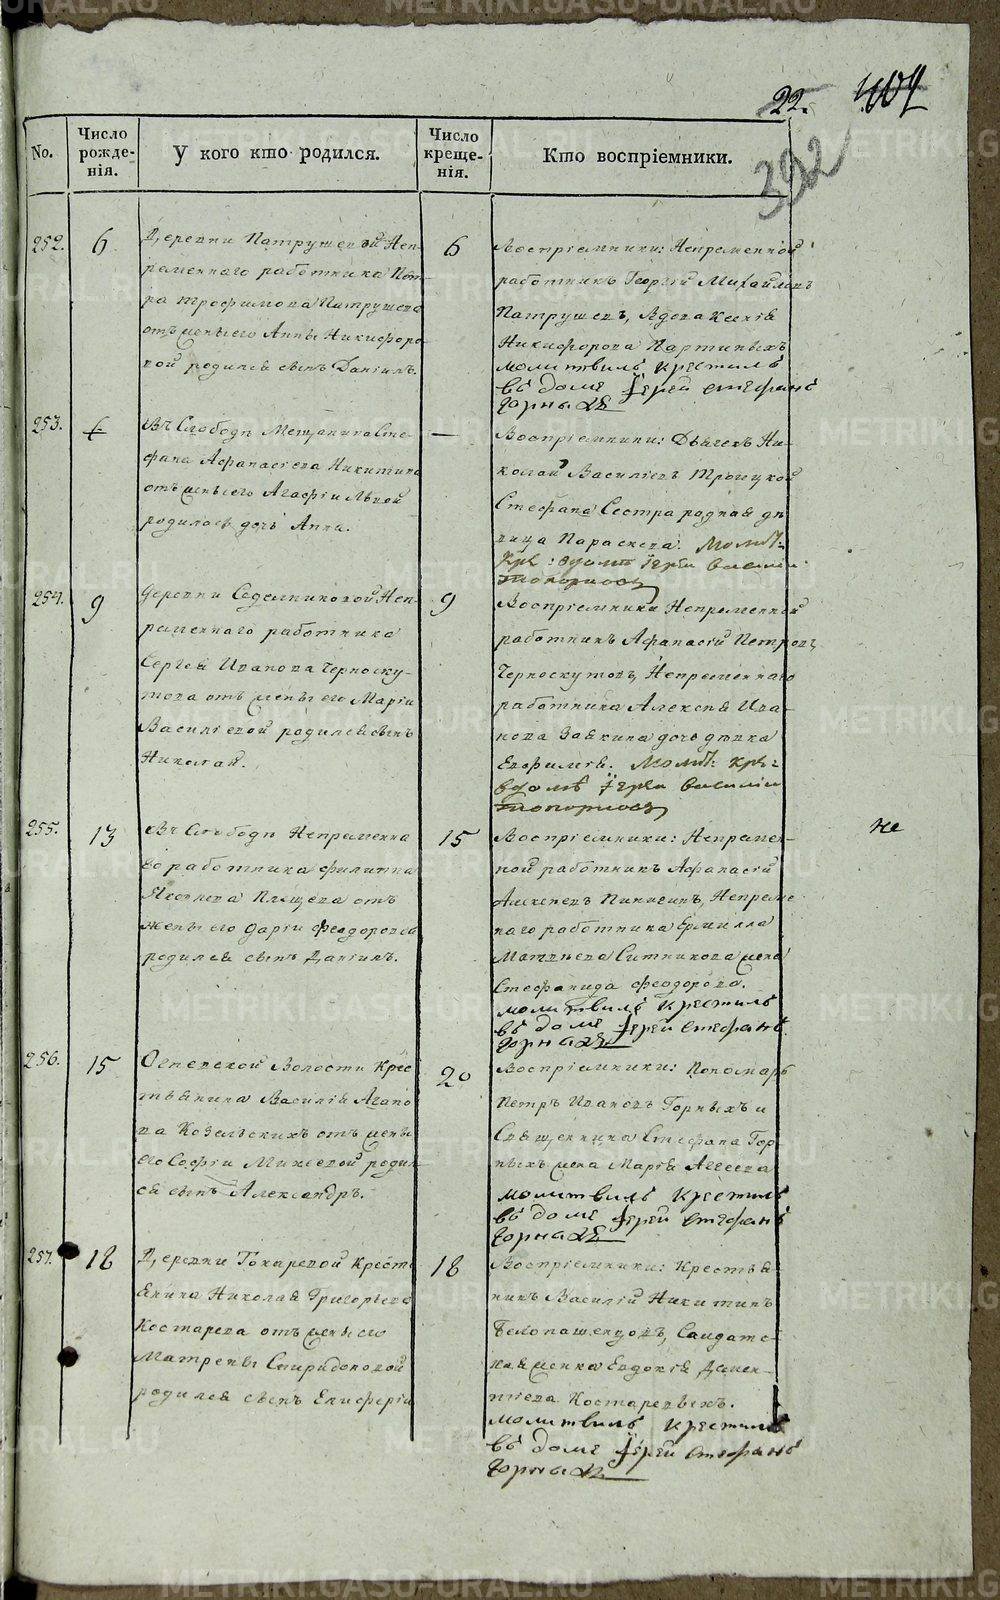 22.
392
No.
Число рожде-нія.
У кого кто родился.
Число креще-нія.
Кто воспріемники.
252.
6
Деревни Патрушевой Неп-
ременнаго работника Пет-
ра Трофимова Патрушева
отъ жены его Анны Никифоро-
вой родился сынъ Даніилъ.
6
Воспріемники: Непременной
работникъ Георгій Михайловъ
Патрушевъ, Вдова Ксенія
Никифорова
молитвилъ крестилъ
въ доме Іерей Стефанъ
Горныхъ
253.
Въ Слободе Мещанина Сте-
фана Афанасіева Никитина
отъ жены его Агафіи Львовой
родилась дочь Анна.
—
Воспріемники: Дьячекъ Ни-
колай Василіевъ Троицкой
Стефана Сестра родная де-
вица Параскева. Молит:
Кре: вдоме Іерей Василій
Топорковъ
254.
9
Деревни Седельниковой Неп-
ременнаго работника
Сергея Иванова Черноску-
това отъ жены его Маріи
Василіевой родился сынъ
Николай.
9
Воспріемники Непременной
работникъ Афанасій Петровъ
Черноскутовъ, Непременнаго
работника Алексея Ива-
нова Заякина дочь девка
Евфимія. Молит: Кре:
вдоме Іерей Василій
Топорковъ
255.
13
Въ Слободе Непременна
го работника Филиппа
Яковлева Плещева отъ
жены его Дарьи Феодоровой
родился сынъ Даніилъ.
15
Воспріемники: Непремен-
ной работникъ Афанасій
Алексеевъ Непреме-
ннаго работника Ермила
Матвеева Ситникова жена
Стефанида Феодорова.
молитвилъ Крестилъ
въ доме Іерей Стефанъ
Горныхъ
не
256.
15
Волости Крес-
тьянина Василія Агапо-
ва Козельскихъ отъ жены
его Софіи Михеевой родил-
ся сынъ Александръ.
20
Воспріемники: Пономарь
Петръ Ивановъ Горныхъ и
Священника Стефана Гор-
ныхъ жена Марія Агеева
молитвилъ Крестилъ
въ доме Іерей Стефанъ
Горныхъ
257.
18
Деревни Токаревой Крест-
янина Николая Григорьева
Костарева отъ жены его
Матрены Спиридоновой
родился сынъ Елисферій
18
Воспріемники: Крестья-
нинъ Василій Никитинъ
Белопашенцовъ, Салдатс-
кая женка Евдокія Демен-
тиева Костаревыхъ.
молитвилъ крестилъ
въ доме Іерей Стефанъ
Горныхъ